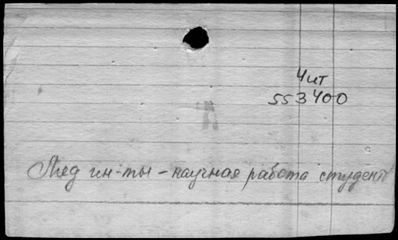 Чит
553400
Мед ин-ты - научная работа студент